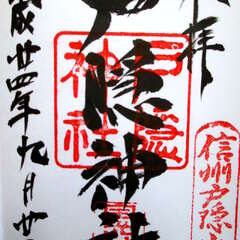 拝
信州戸隠
戸隠神社
戸隠
神社
成廿四年九月廿